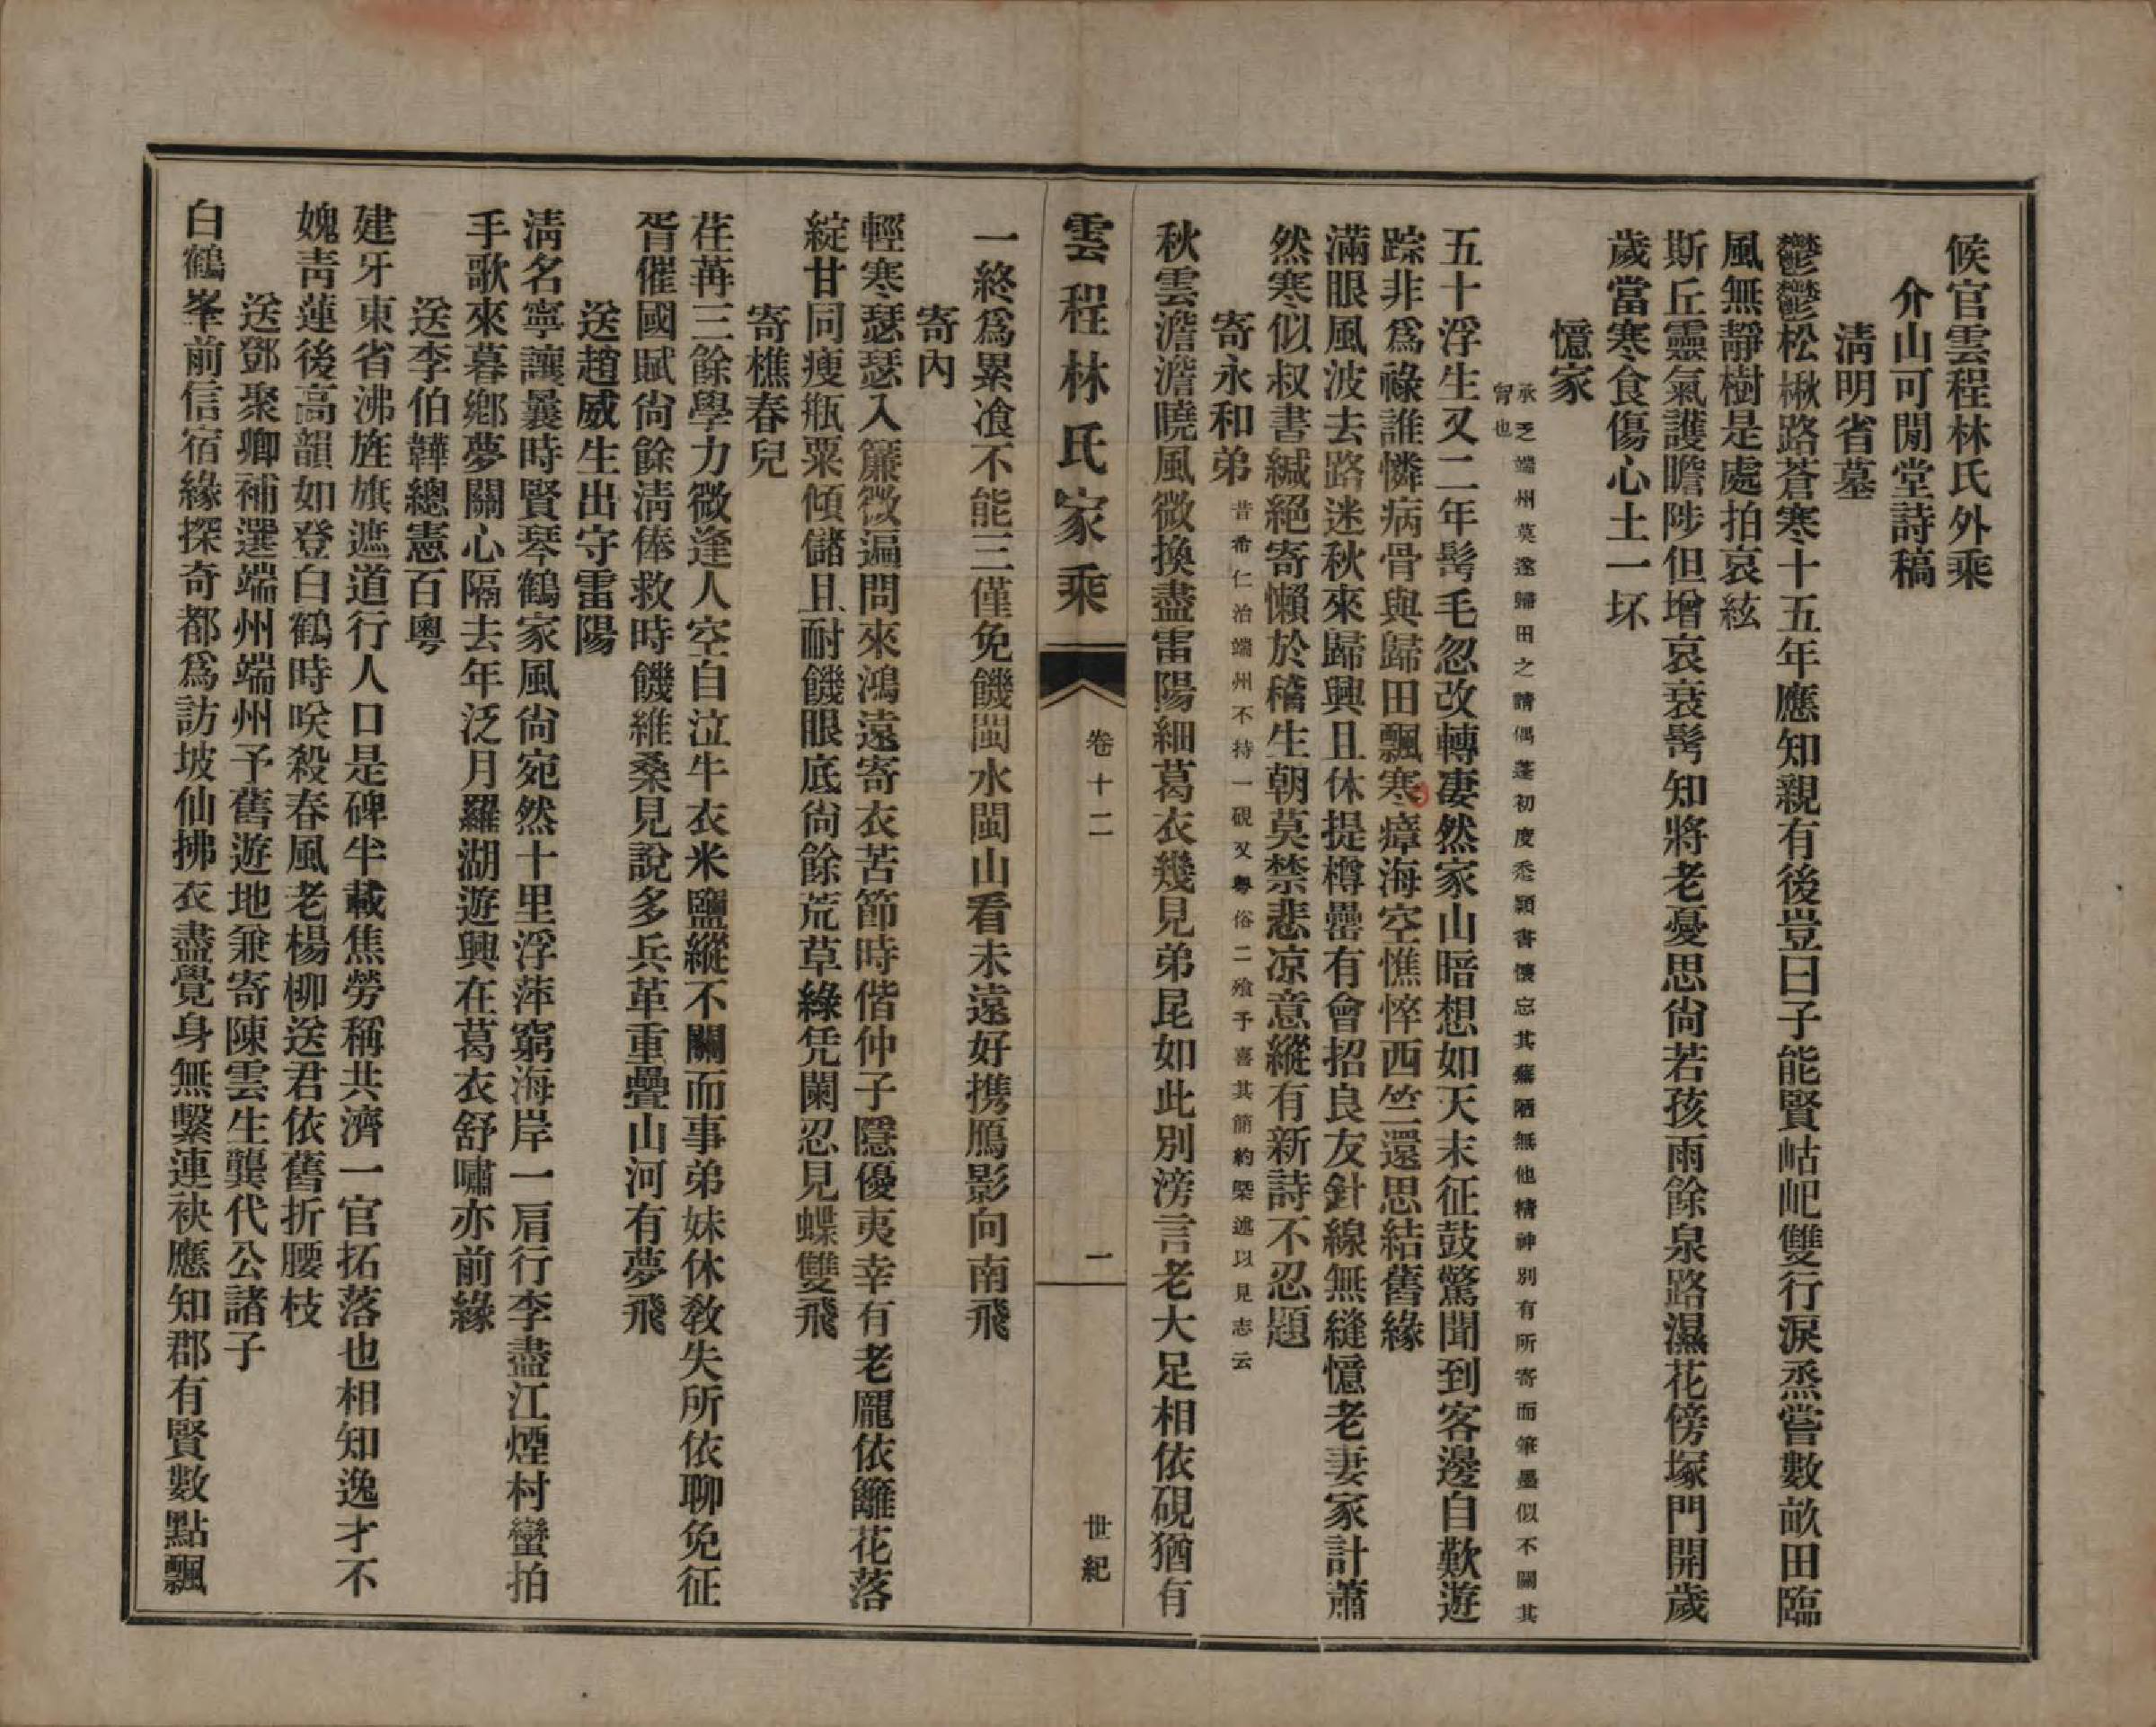 候官雲程林氏外乘
介山可閒堂詩稿
淸明省墓
鬱鬱松楸路蒼寒十五年應知親有後豈曰子能賢岵屺雙行淚烝嘗數畝田臨
風無靜樹是處拍哀絃
斯丘靈氣護瞻陟但增哀衰髩知將老憂思尙若孩雨餘泉路濕花傍塚門開歲
歲當寒食傷心土一坏
憶家
承乏端州莫遂歸田之請偶蓬初度悉穎書懷忘其蕪陋無他精神別有所寄而筆墨似不關其
胷也
五十浮生又二年髩毛忽改轉凄然家山暗想如天末征鼓驚聞到客邊自歎遊
踪非爲祿誰憐病骨與歸田飄寒瘴海空憔悴西竺還思結舊緣
滿眼風波去路迷秋來歸興且休提樽罍有會招良友針線無縫憶老妻家計蕭
然寒似叔書緘絕寄懶於稽生朝莫禁悲凉意縱有新詩不忍題
寄永和弟
昔希仁治端州不持一硯又粵俗二飧予喜其簡約槩述以見志云
秋雲澹澹曉風微換盡雷陽細葛衣幾見弟昆如此別滂言老大足相依硯猶有
雲程林氏家乘
卷十二
一
世紀
一終爲累飡不能三僅免饑閩水閩山看未遠好携鴈影向南飛
寄內
輕寒瑟瑟入簾微遍問來鴻遠寄衣苦節時偕仲子隱優夷幸有老龎依籬花落
綻甘同瘦甁粟傾儲且耐饑眼底尙餘荒草綠凭闌忍見蝶雙飛
寄樵春兒
荏苒三餘學力微逢人空自泣牛衣米鹽縱不關而事弟妹休敎失所依聊免征
胥催國賦尙餘淸俸救時饑維桑見說多兵革重疊山河有夢飛
送趙威生出守雷陽
淸名寧讓曩時賢琴鶴家風尙宛然十里浮萍窮海岸一肩行李盡江煙村蠻拍
手歌來暮鄕夢關心隔去年泛月羅湖遊興在葛衣舒嘯亦前緣
送李伯韡總憲百粵
建牙東省沸旌旗遮道行人口是碑半載焦勞稱共濟一官拓落也相知逸才不
媿靑蓮後高韻如登白鶴時咲殺春風老楊柳送君依舊折腰枝
送鄧聚卿補選端州端州予舊遊地兼寄陳雲生龔代公諸子
白鶴峯前信宿緣探奇都爲訪坡仙拂衣盡覺身無繫連袂應知郡有賢數點飄